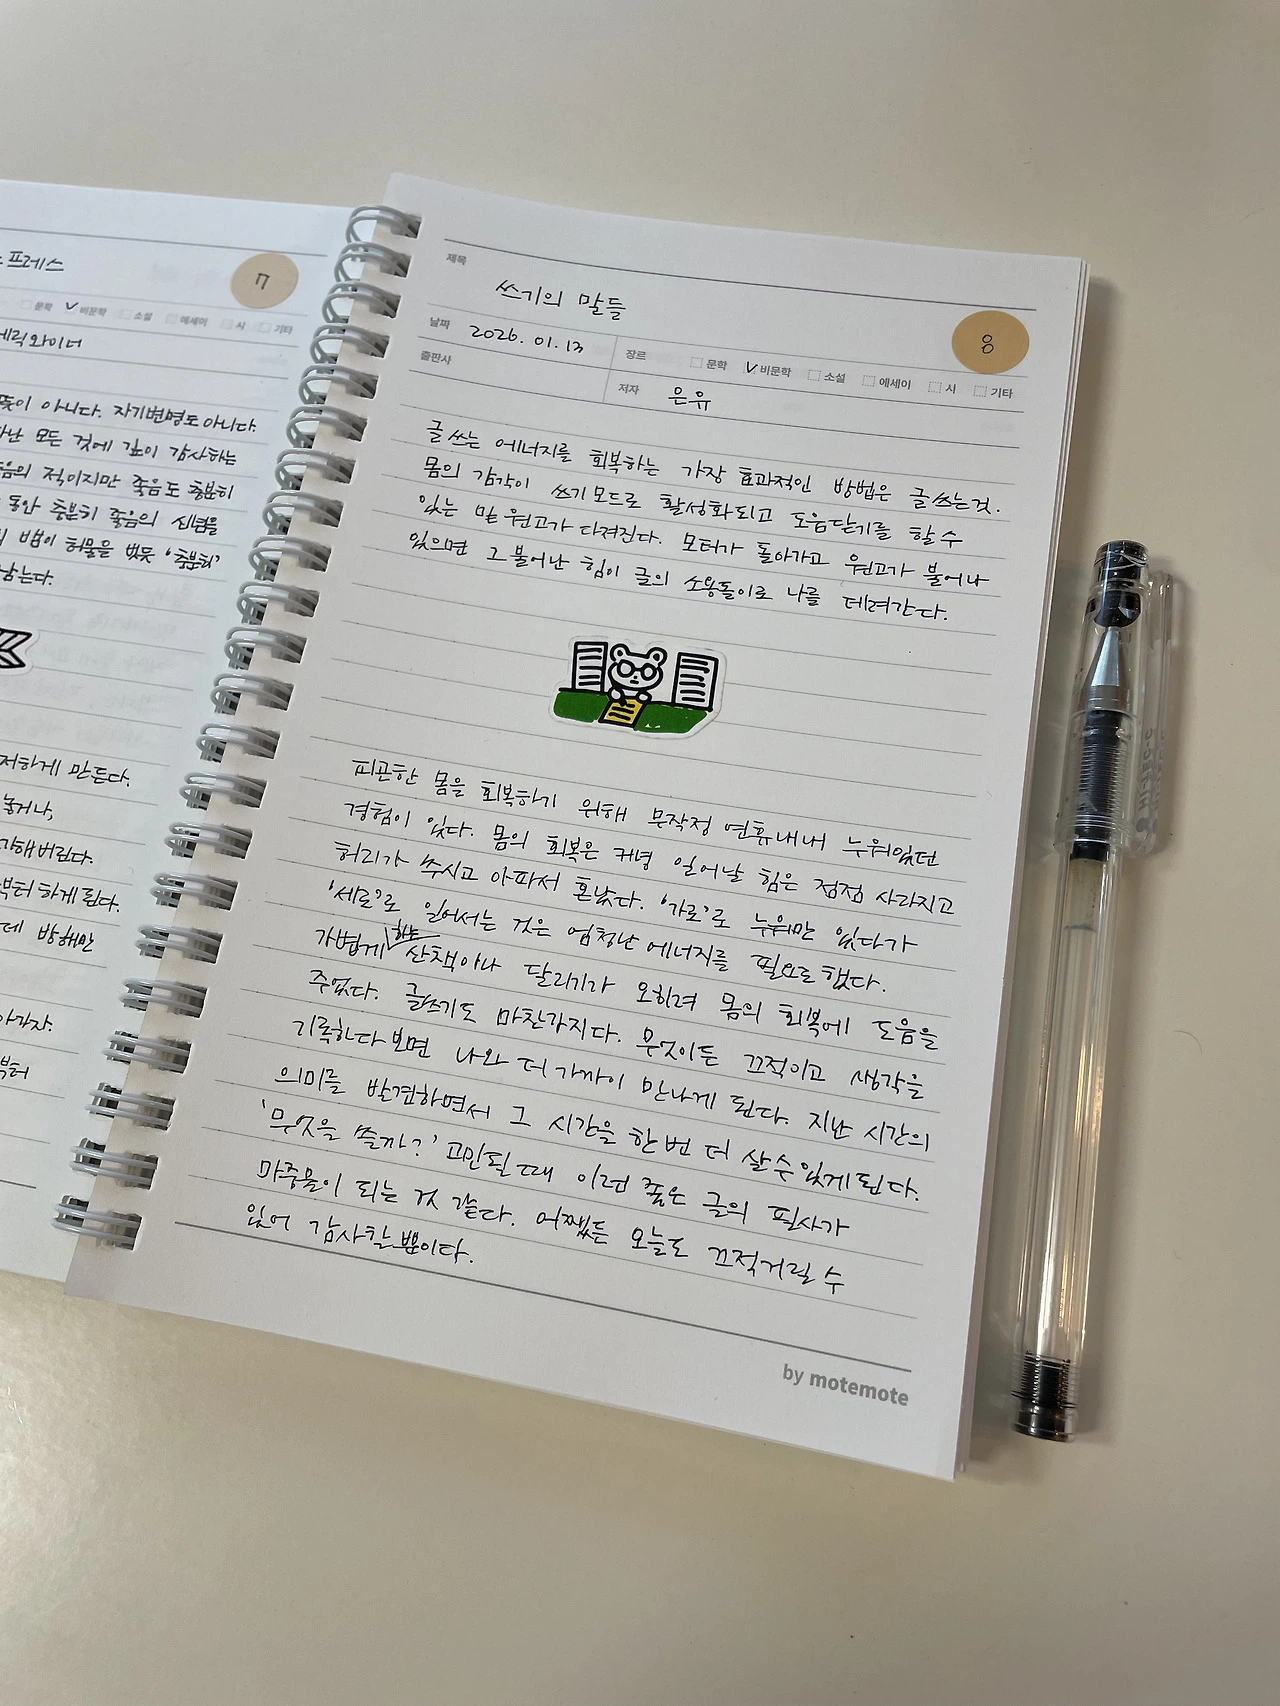 프레스
7
문학 ✓ 비문학 소설 에세이 시 기타
에릭 와이너
뜻이 아니다. 자기변명도 아니다.
모든 것에 깊이 감사하는
음의 적이지만 죽음도 충분히
동안 충분히 죽음의 신념을
뱀이 허물을 벗듯 '충분히'
남는다.
저하게 만든다.
놓거나,
해버린다.
부터 하게 된다.
데 방해만
아가자.
부터
제목
쓰기의 말들
8
날짜 2026. 01. 13 장르 문학 ✓ 비문학 소설 에세이 시 기타
출판사 저자 은유
글쓰는 에너지를 회복하는 가장 효과적인 방법은 글쓰는 것.
몸의 감각이 쓰기모드로 활성화되고 도움닫기를 할 수
있는 밑 원고가 다져진다. 모터가 돌아가고 원고가 불어나
있으면 그 불어난 힘이 글의 소용돌이로 나를 데려간다.
피곤한 몸을 회복하기 위해 무작정 연휴내내 누워있던
경험이 있다. 몸의 회복은 커녕 일어날 힘은 점점 사라지고
허리가 쑤시고 아파서 혼났다. '가로'로 누워만 있다가
'세로'로 일어서는 것은 엄청난 에너지를 필요로 했다.
가볍게 하는 산책이나 달리기가 오히려 몸의 회복에 도움을
주었다. 글쓰기도 마찬가지다. 무엇이든 끄적이고 생각을
기록하다보면 나와 더 가까이 만나게 된다. 지난 시간의
의미를 발견하면서 그 시간을 한 번 더 살 수 있게 된다.
'무엇을 쓸까?' 고민될 때 이런 좋은 글의 필사가
마중물이 되는 것 같다. 어쨌든 오늘도 끄적거릴 수
있어 감사할 뿐이다.
by motemote